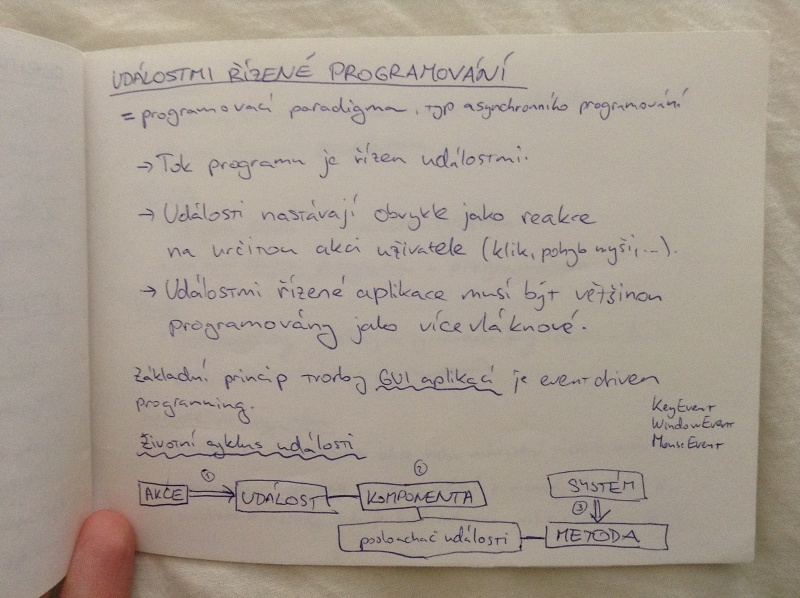 UDÁLOSTMI ŘÍZENÉ PROGRAMOVÁNÍ
= programovací paradigma, typ asynchronního programování
→ Tok programu je řízen událostmi.
→ Události nastávají obvykle jako reakce
na určitou akci uživatele (klik, pohyb myši, ...).
→ Událostmi řízené aplikace musí být většinou
programovány jako vícevláknové.
Základní princip tvorby GUI aplikací je event driven
programming.
KeyEvent
WindowEvent
MouseEvent
Životní cyklus události
AKCE ① UDÁLOST ② KOMPONENTA
SYSTÉM
③
posluchač událostí METODA